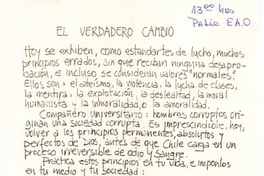 13ºº hrs
Patio E.A.O
EL VERDADERO CAMBIO
Hoy se exhiben, como estandartes de lucha, muchos
principios errados, sin que reciban ninguna desapro-
bación, e incluso se consideran valores "normales".
Ellos son: el ateísmo, la violencia, la lucha de clases,
la mentira, la explotación, la deslealtad, la moral
humanista y la inmoralidad, o la amoralidad.
Compañero universitario: hombres corruptos ori-
ginan una sociedad corrupta. Es imprescindible, hoy,
volver a los principios permanentes, absolutos y
perfectos de Dios, antes de que Chile caiga en un
proceso irreversible de odio y sangre.
Practica estos principios en tu vida, e imponlos
en tu medio y tu sociedad: